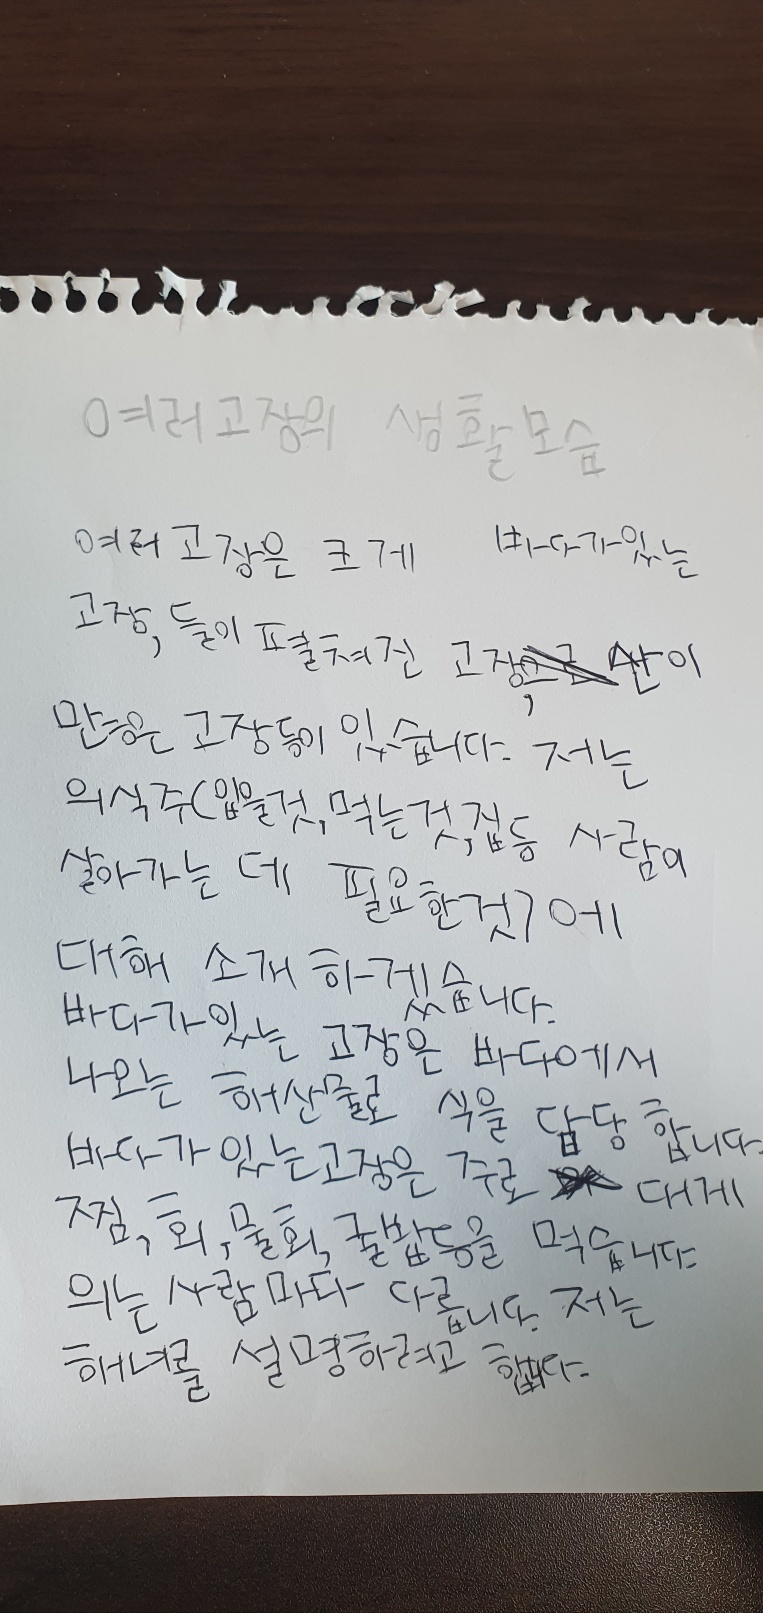 여러고장의 생활모습
여러 고장은 크게 바다가있는
고장, 들이 펼쳐진 고장, 산이
많은 고장등이 있습니다. 저는
의식주(입을것,먹는것,집등 사람이
살아가는 데 필요한것)에
대해 소개 하겠습니다.
바다가있는 고장은 바다에서
나오는 해산물로 식을 담당 합니다.
바다가 있는고장은 주로 대게
찜, 회, 물회, 굴밥등을 먹습니다.
의는 사람마다 다릅니다. 저는
해녀를 설명하려고 합니다.